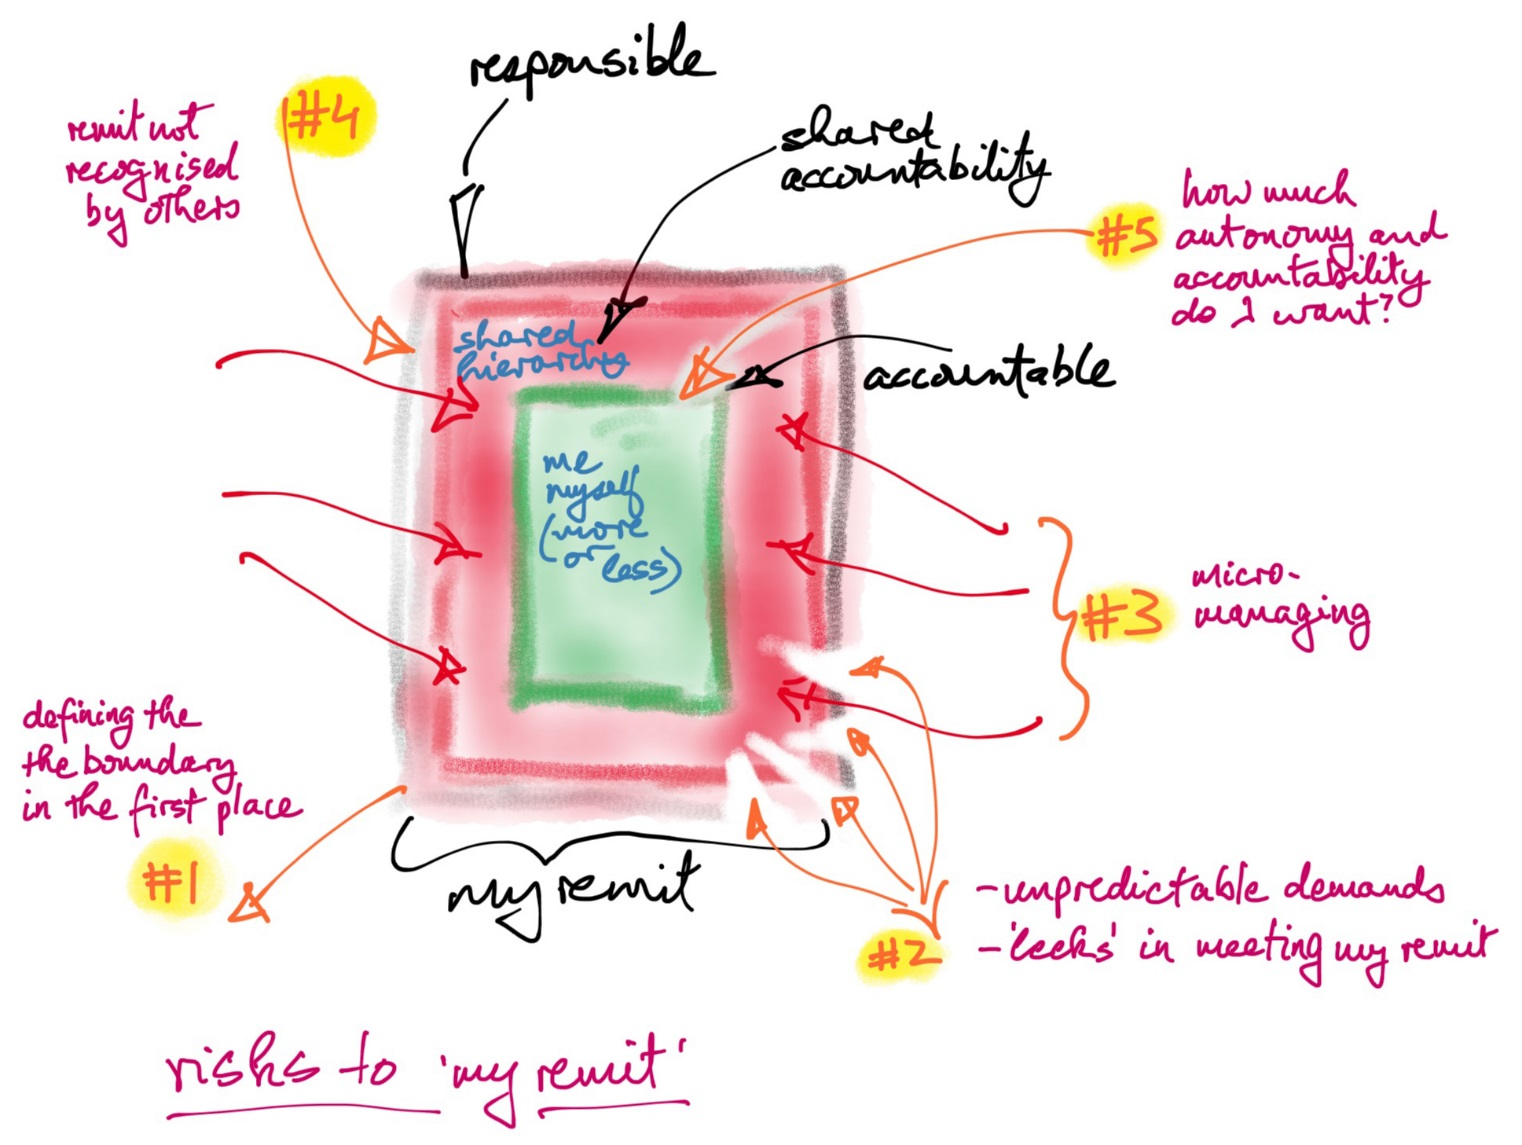 responsible
#4
remit not
recognised
by others
shared
accountability
#5
how much
autonomy and
accountability
do I want?
shared
hierarchy
accountable
me
myself
(more
or
less)
#3
micro-
managing
defining the
the boundary
in the first place
#1
my remit
#2
-unpredictable demands
-'leeks' in meeting my remit
risks to 'my remit'